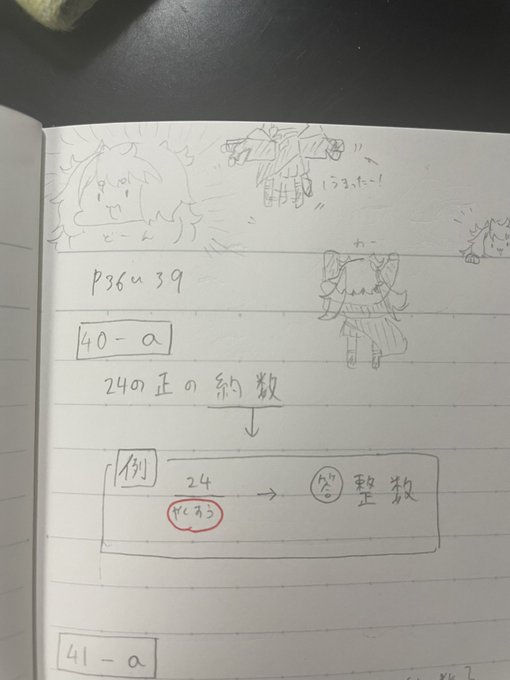 うまったー!
どーん
わー
P36〜39
40-a
24の正の約数
例
24
やくすう
→ 答 整数
41-a